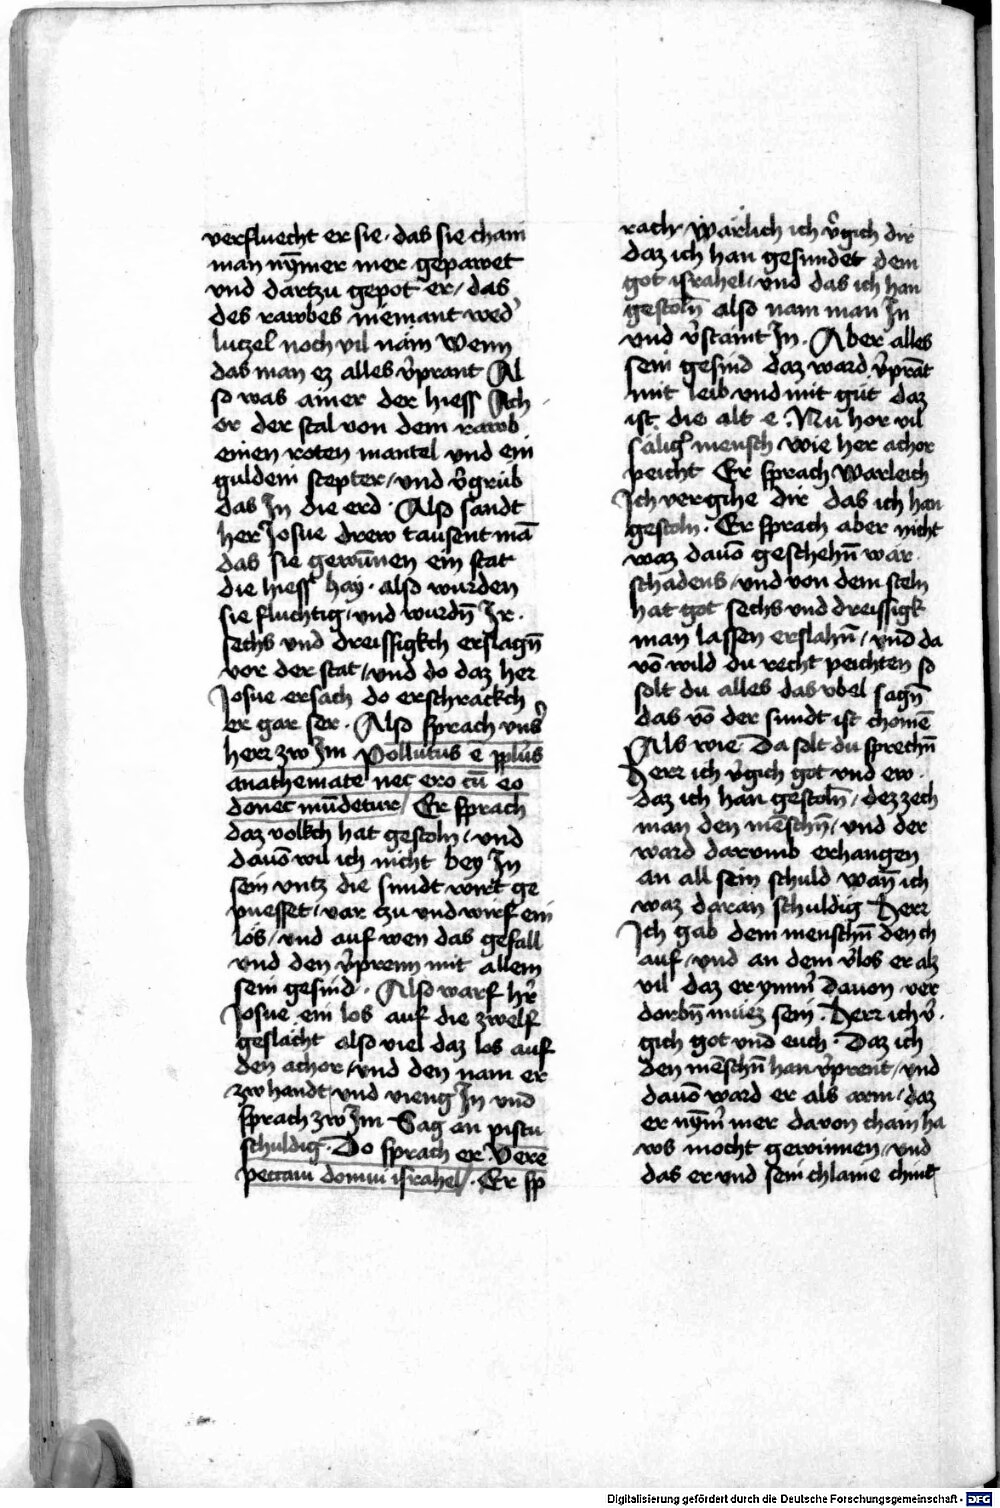 verfluecht er sie · das sie chain
man nÿmer mer gepawet
vnd dartzu gepot er / das
des rawbes niemant wed̕
lutzel noch vil näm Wenn
das man ez alles v̕prant Al
so was ainer der hiess Ach
or der stal von dem rawb
einen roten mantel vnd ein
guldein scepter / vnd v̕grůb
das In die erd · Also sandt
her Josue drew tausent mā
das sie gewūnen ein stat
die hiess hay · also wurden
sie fluchtig / vnd wurdn̄ Ir ·
sechs vnd dreissigkch erslagn̄
vor der stat / vnd do daz her
Josue ersach do erschrackch
er gar ser · Also sprach vns̕
herr zw Im Pollutus ē pplūs
anathemate nec ero cū eo
donec mūdetur / Er sprach
daz volkch hat gestoln / vnd
dauō wil ich nicht bey In
sein vntz die sundt wirt ge
puesset / var tzu vnd wirf ein
los / vnd auf wen das gefall
vnd den v̕prenn mit allem
sein gesind · Also warf hr̄
Josue ein los auf die zwelf
geslächt also viel daz los auf
den achor / vnd den nam er
zw handt vnd vieng In vnd
sprach zw Im Sag an pistu
schuldig · Do sprach er Vere
peccaui domui israhel / · Er sp
rach · Wärlich ich v̕gich dir
daz ich han gesundet dem
got israhel / vnd das ich han
gestoln̄ also nam man In
vnd v̕staint In · Aber alles
sein gesind daz ward v̕prāt
mit leib vnd mit gůt daz
ist die alt e · Nu hor vil
sälig̕ mensch wie her achor
peicht Er sprach Warleich
Ich vergihe dir das ich han
gestoln · Er sprach aber nicht
waz dauō geschehn̄ wär ·
schadens / vnd von dem steln
hat got sechs vnd dreissigk
man lassen erslahn̄ / vnd da
vō wild du recht peichten so
solt du alles das vbel sagn̄
das vō der sundt ist chomē
Als wie · Da solt du sprechn̄
Herr ich v̕gich got vnd ew ·
daz ich han gestoln̄ / dez zech
man den mēschn̄ / vnd der
ward darumb erhangen
an all sein schuld wan̄ ich
waz daran schuldig Herr
Ich gab dem menschn̄ den ch
auf / vnd an dem v̕los er alz
vil daz er ymm̕ dauon ver
dorbn̄ müez sein · Herr ich v̕ ·
gich got vnd euch · Daz ich
den mēschn̄ han v̕prent / vnd
dauō ward er als arm / daz
er nÿm̕ mer daron chain ha
ws mocht gewinnen / vnd
das er vnd sein chlaine chind
Digitalisierung gefördert durch die Deutsche Forschungsgemeinschaft - DFG